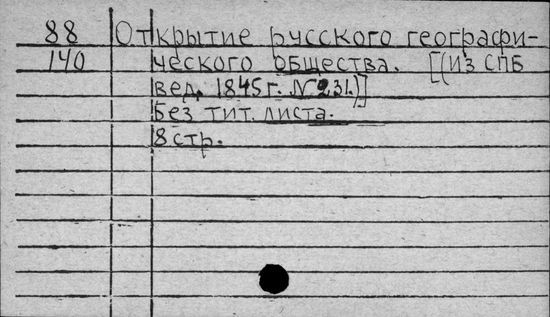 88 Открытие русского географи-
140 ческого общества. [(из СПБ
вед. 1845 г. №231.)]
Без тит. листа.
8 стр.